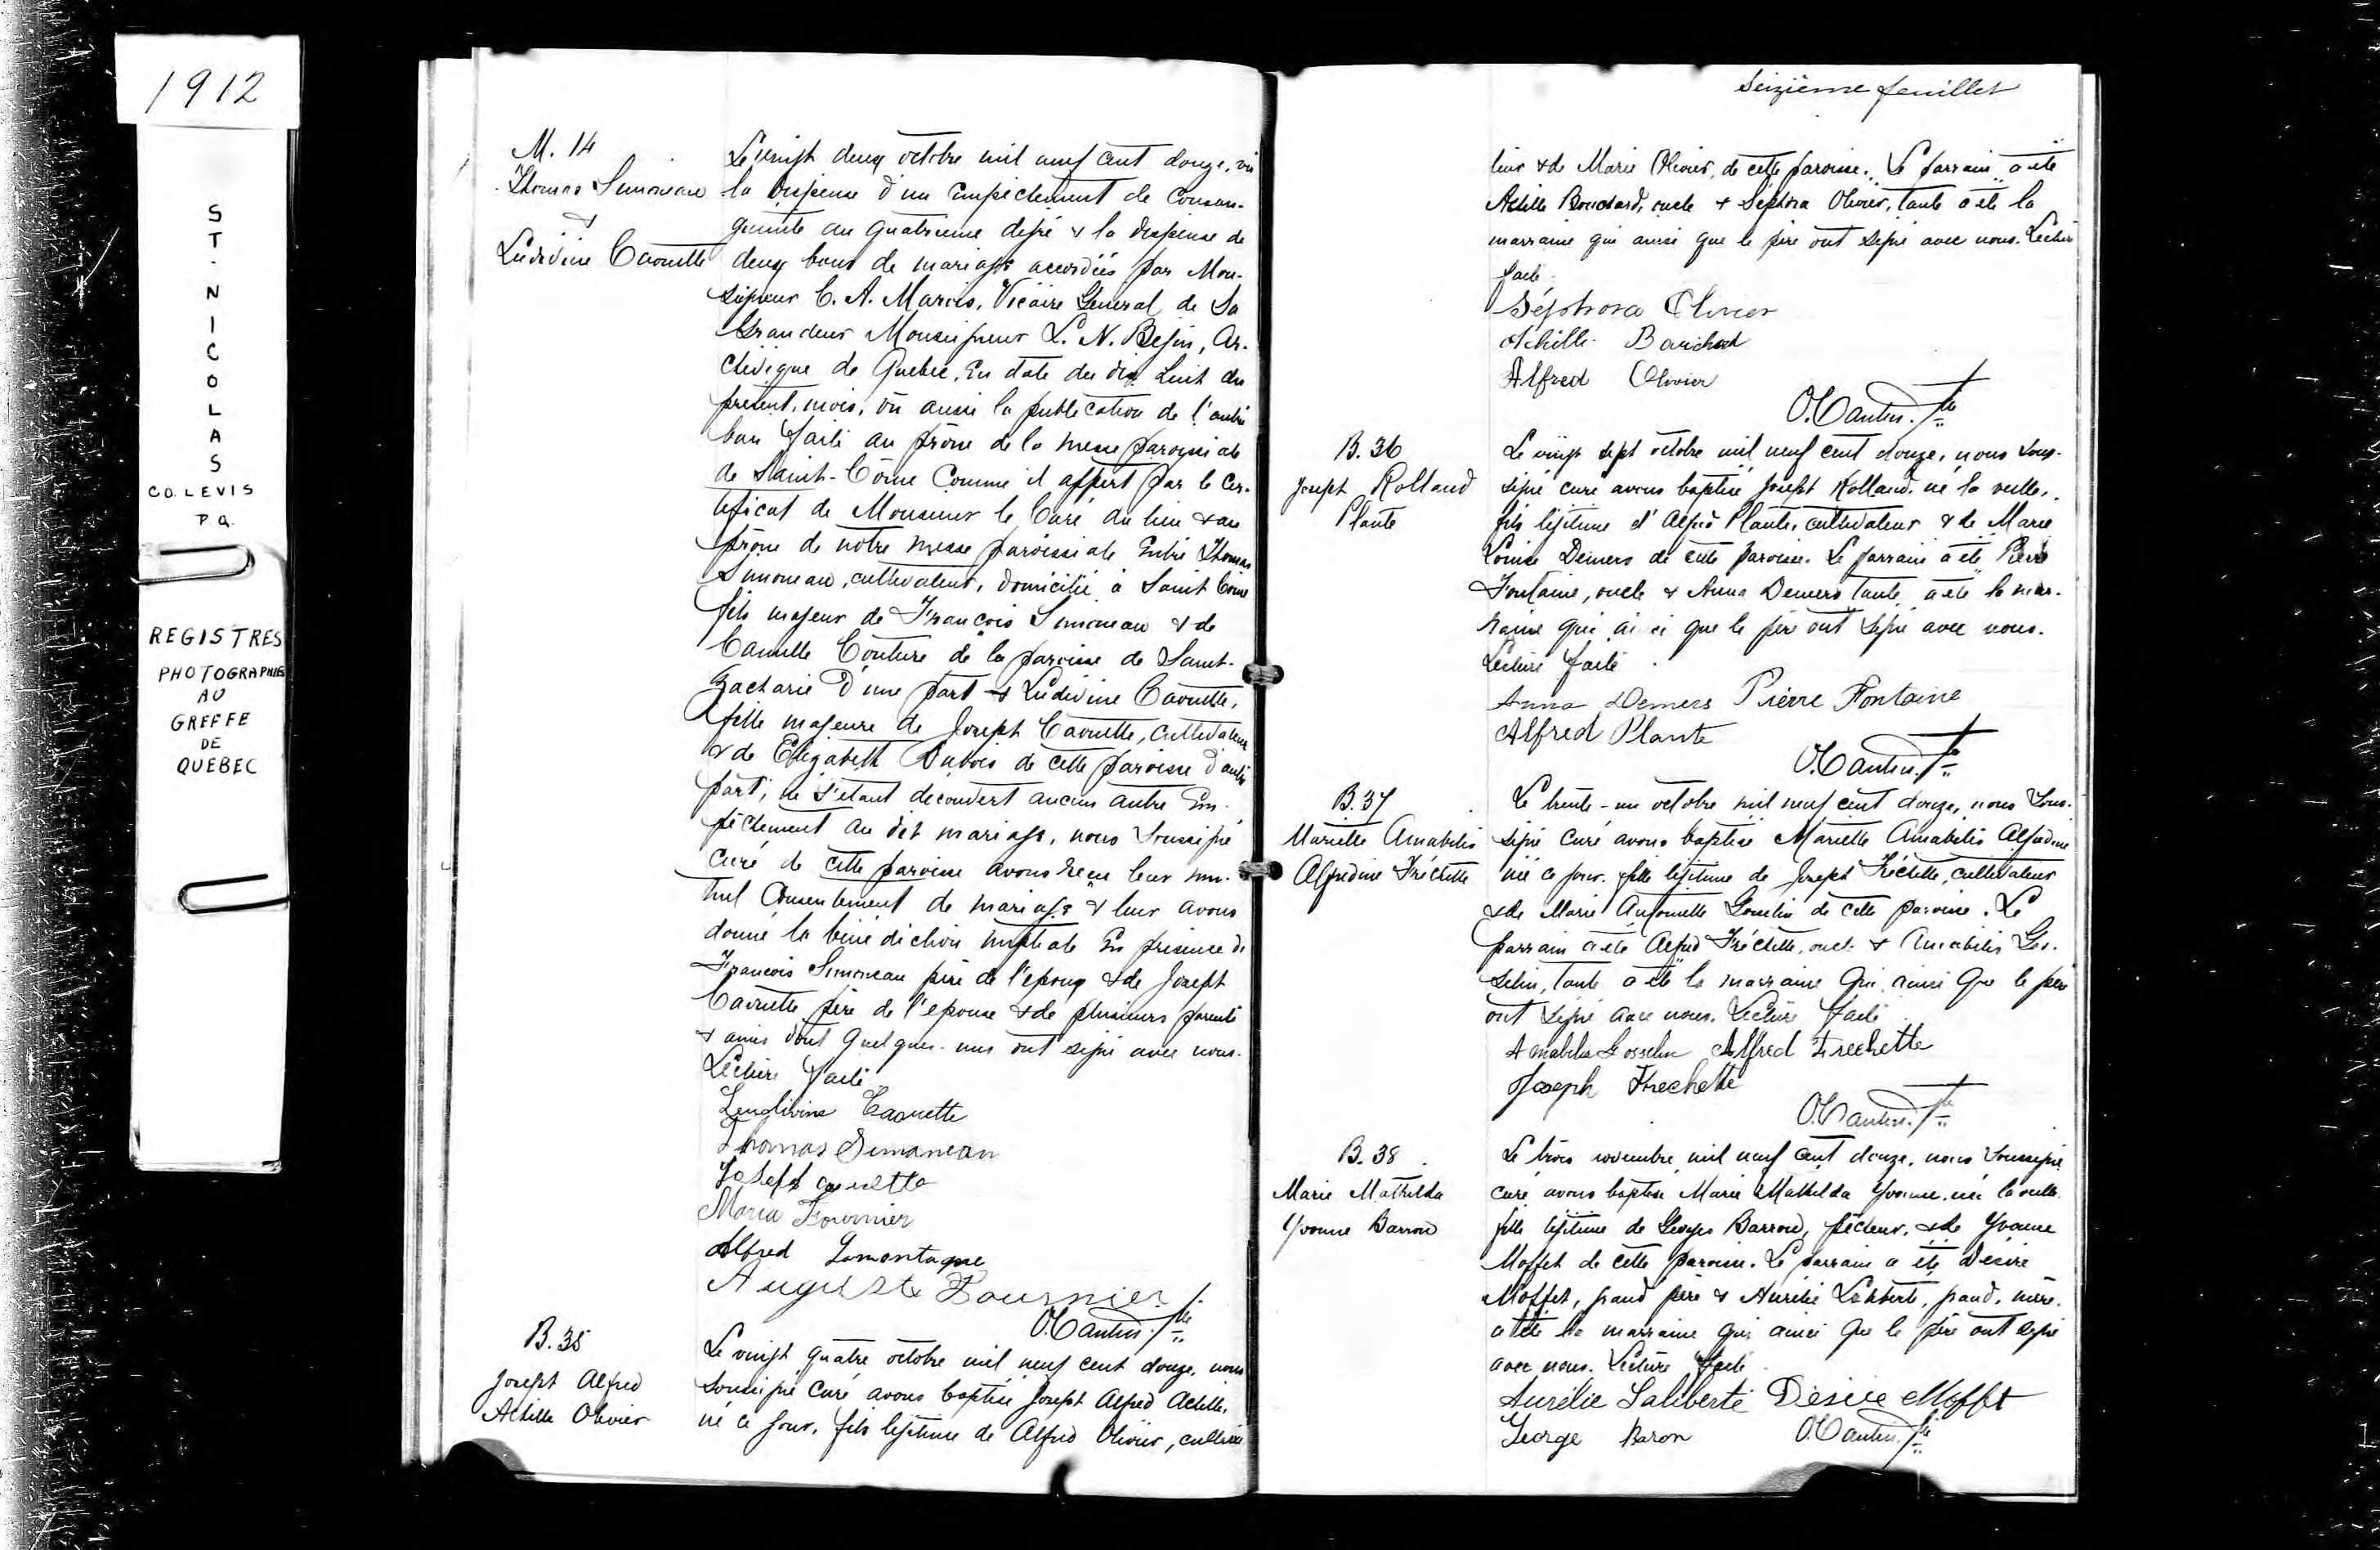 1912
ST. NICOLAS
CO. LEVIS
P.Q.
REGISTRES
PHOTOGRAPHIES
AU
GREFFE
DE
QUEBEC
M. 14
Thomas Simoneau
&
Ludivine Caouette
Le vingt deux octobre mil neuf cent douze, vu
la dispense d'un empêchement de consan-
guinité au quatrième degré & la dispense de
deux bans de mariage accordées par Mon-
seigneur C. A. Marois, Vicaire Général de Sa
Grandeur Monseigneur L. N. Bégin, Ar-
chevêque de Québec, en date du dix huit du
présent mois, vu aussi la publication de l'autre
ban faite au prône de la messe paroissiale
de Saint-Côme comme il appert par le cer-
tificat de Monsieur le Curé du lieu & au
prône de notre messe paroissiale entre Thomas
Simoneau, cultivateur, domicilié à Saint Côme
fils majeur de François Simoneau & de
Camille Couture de la paroisse de Saint-
Zacharie d'une part & Ludivine Caouette,
fille majeure de Joseph Caouette, cultivateur
& de Elizabeth Dubois de cette paroisse d'autre
part; ne s'étant découvert aucun autre em-
pêchement au dit mariage, nous soussigné
curé de cette paroisse avons reçu leur mu-
tuel consentement de mariage & leur avons
donné la bénédiction nuptiale en présence de
François Simoneau père de l'époux & de Joseph
Caouette père de l'épouse & de plusieurs parents
& amis dont quelques-uns ont signé avec nous.
Lecture faite
Caouette
Thomas Simaneau
Joseph
Maria Fournier
Alfred Lamontagne
Auguste Fournier
O. Cantin Ptre
B. 35
Joseph Alfred
Achille Olivier
Le vingt quatre octobre mil neuf cent douze, nous
soussigné curé avons baptisé Joseph Alfred Achille,
né ce jour, fils légitime de Alfred Olivier, cultiva
Seizième feuillet
teur & de Marie Olivier, de cette paroisse. Le parrain a été
Achille Bouchard, oncle & Séphora Olivier, tante a été la
marraine qui ainsi que le père ont signé avec nous. Lecture
faite.
Séphora Olivier
Achille
Alfred Olivier
O. Cantin. Ptre
B. 36
Joseph Rolland
Plante
Le vingt sept octobre mil neuf cent douze, nous sous-
signé curé avons baptisé Joseph Rolland, né la veille,
fils légitime d'Alfred Plante, cultivateur & de Marie
Louise Demers de cette paroisse. Le parrain a été Pierre
Fontaine, oncle & Anna Demers tante a été la mar-
raine qui ainsi que le père ont signé avec nous.
Lecture faite.
Anna Demers Pierre Fontaine
Alfred Plante
O. Cantin. Ptre
B. 37
Marielle Amabilis
Alfredine Fréchette
Le trente-un octobre mil neuf cent douze, nous sous-
signé curé avons baptisé Marielle Amabilis Alfredine
née ce jour, fille légitime de Joseph Fréchette, cultivateur
& de Marie Antoinette Gosselin de cette paroisse. Le
parrain a été Alfred Fréchette, oncle & Amabilis Gos-
selin, tante a été la marraine qui ainsi que le père
ont signé avec nous. Lecture faite
Amabilis Gosselin Alfred Frechette
Joseph Frechette
O. Cantin. Ptre
B. 38
Marie Mathilda
Yvonne Barron
Le trois novembre mil neuf cent douze, nous soussigné
curé avons baptisé Marie Mathilda Yvonne, née la veille
fille légitime de Georges Barron, pêcheur, & de Yvonne
Moffet de cette paroisse. Le parrain a été Désiré
Moffet, grand père & Aurélie Laliberté, grand-mère
a été la marraine qui ainsi que le père ont signé
avec nous. Lecture faite.
Aurélie Laliberté Désire Moffet
George Baron O. Cantin. Ptre